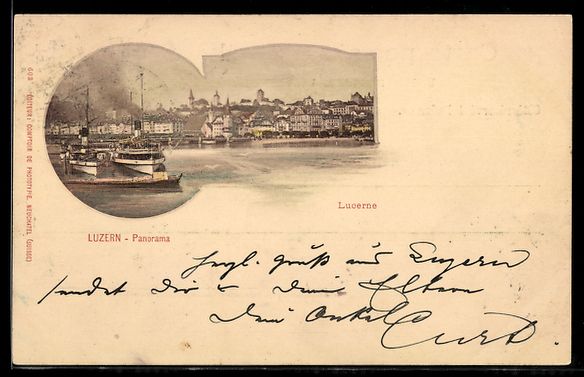 603 ÉDITEUR, COMPTOIR DE PHOTOTYPIE, NEUCHATEL (SUISSE)
Lucerne
LUZERN - Panorama
Herzl. Gruß aus Luzern
sendet Dir & Deinen Eltern
Dein Onkel Curt.